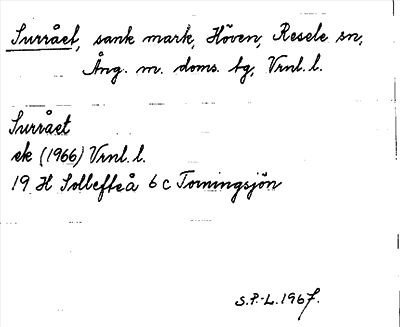 Surrået, sank mark, Höven, Resele sn,
Ång. m. doms. tg, Vrnl. l.
Surrået
ek (1966) Vrnl. l.
19 H Sollefteå 6 c Torningsjön
S.P.-L. 1967.